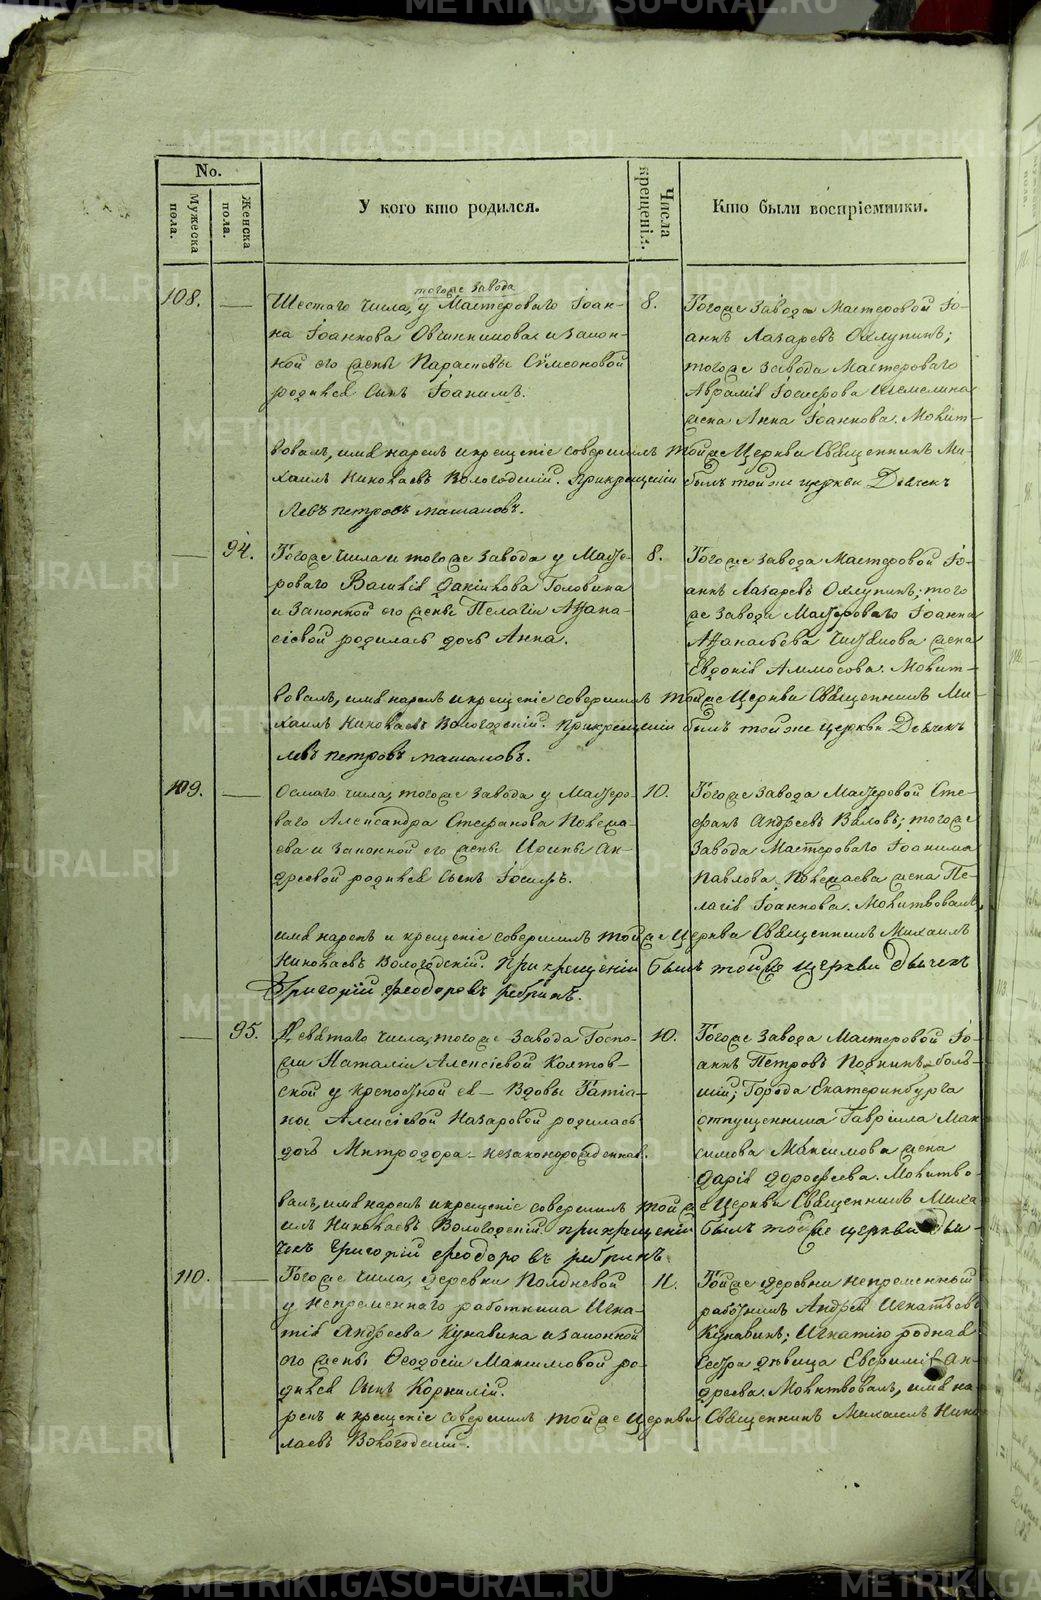 No.
Мужеска пола.
Женска пола.
У кого кто родился.
Числа крещенія.
Кто были воспріемники.
108.
тогоже завода
Шестаго числа, у Мастероваго Іоан-
на Іоаннова Овчинникова и закон-
ной его жены Парасковы Сѵмеоновой
родился сынъ Іоакимъ.
8.
Тогоже завода Мастеровой Іо-
аннъ Лазаревъ Охлупинъ;
тогоже завода Мастероваго
Авраамія Іосифова Шемелина
жена Анна Іоаннова. Молит-
вовалъ, имя нарекъ и крещеніе совершилъ тойже Церкви Священникъ Ми-
хаилъ Николаевъ Вологодскій. При крещеніи былъ той же церкви Дьячекъ
Левъ Петровъ
94.
Тогоже числа и тогоже завода у Масте-
роваго Василія Головина
и законной его жены Пелагіи Афана-
сіевой родилась дочь Анна.
8.
Тогоже завода Мастеровой Іо-
аннъ Лазаревъ Охлупинъ; того
же завода Мастероваго Іоанна
Афанасьева жена
Евдокія Аммосова. Молит-
вовалъ, имя нарекъ и крещеніе совершилъ тойже Церкви Священникъ Ми-
хаилъ Николаевъ Вологодскій. При крещеніи былъ той же церкви Дьячекъ
Левъ Петровъ
109.
Осмаго числа, тогоже завода у Мастеро-
ваго Александра Стефанова
и законной его жены Ирины Ан-
дреевой родился сынъ Іосифъ.
10.
Тогоже завода Мастеровой Сте-
фанъ Андреевъ Валовъ; тогоже
завода Мастероваго Іоакима
Павлова жена Пе-
лагія Іоаннова. Молитвовалъ,
имя нарекъ и крещеніе совершилъ тойже Церкви Священникъ Михаилъ
Николаевъ Вологодскій. При крещеніи былъ тойже церкви Дьячекъ
Григорій Феодоровъ Ребринъ.
95.
Девятаго числа, тогоже завода Госпо-
жи Наталіи Алексіевой Колтов-
ской у крепостной ея Вдовы Татіа-
ны Алексіевой Назаровой родилась
дочь Митродора незаконорожденная.
10.
Тогоже завода Мастеровой Іо-
аннъ Петровъ боль-
шій; Города Екатеринбурга
отпущенника Гавріила Мак-
симова Максимова жена
Дарія Дорофеева. Молитво-
валъ, имя нарекъ и крещеніе совершилъ тойже Церкви Священникъ Миха-
илъ Николаевъ Вологодскій. При крещеніи былъ тойже церкви Дья-
чекъ Григорій Феодоровъ Ребринъ
110.
Тогоже числа, деревни Полдневой
у непременнаго работника Игна-
тія Андреева Кунавина и законной
его жены Ѳеодосіи Максимовой ро-
дился сынъ Корнилій.
11.
Тойже деревни непременный
работникъ Андрей Игнатьевъ
Кунавинъ; Игнатію родная
сестра девица Евфимія Ан-
дреева. Молитвовалъ, имя на-
рекъ и крещеніе совершилъ тойже Церкви Священникъ Михаилъ Нико-
лаевъ Вологодскій.